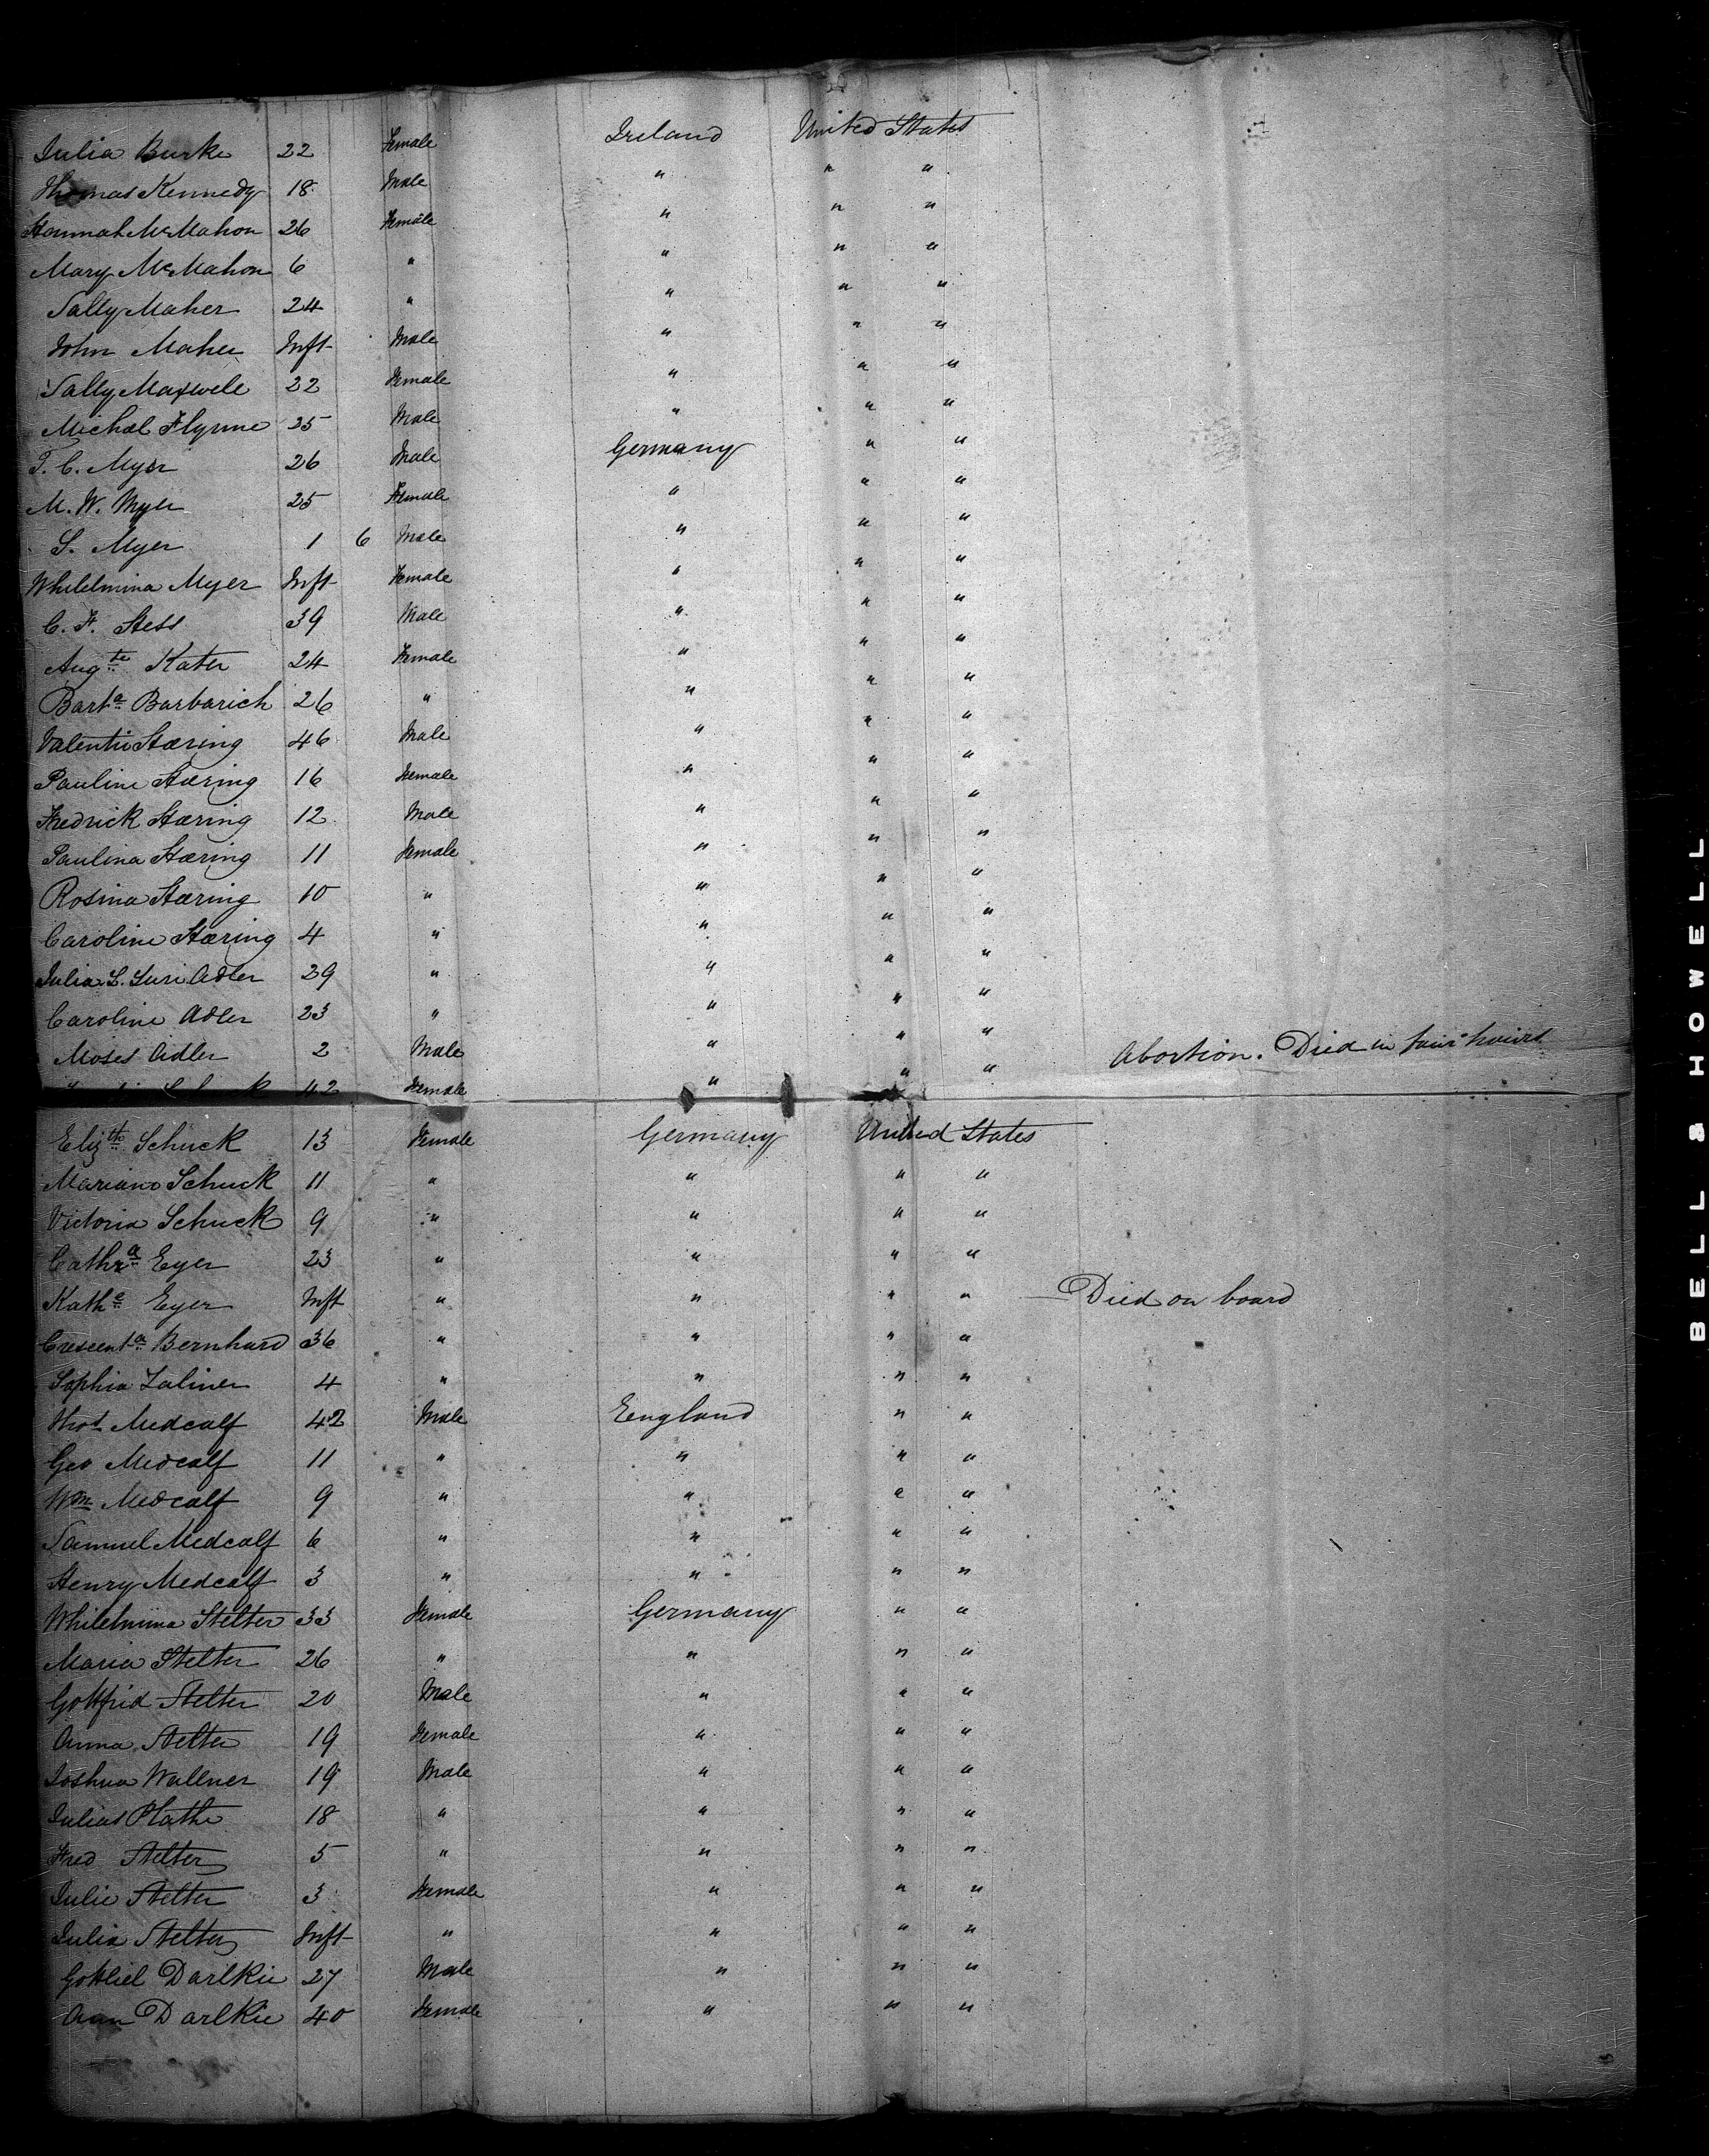 Julia Burke 22 Female Ireland United States
Thomas Kennedy 18 Male " " "
Hannah McMahon 26 Female " " "
Mary McMahon 6 " " " "
Sally Maher 24 " " " "
John Maher Inft Male " " "
Sally Maxwele 22 Female " " "
Michal Flynne 25 Male " " "
C. Myer 26 Male Germany " "
M. W. Myer 25 Female " " "
S. Myer 1 6 Male " " "
Whilelmina Myer Inft Female " " "
C. F. Hess 39 Male " " "
Augte Kater 24 Female " " "
Barta Barbarich 26 " " " "
Valentin Hæring 46 Male " " "
Pauline Hæring 16 Female " " "
Fredrick Hæring 12 Male " " "
Paulina Hæring 11 Female " " "
Rosina Hæring 10 " " " "
Caroline Hæring 4 " " " "
Julia L. Adler 29 " " " "
Caroline Adler 23 " " " "
Moses Adler 2 Male " " "
42 Female " " " Abortion. Died in four hours
Elizth Schuck 13 Female Germany United States
Mariano Schuck 11 " " " "
Victoria Schuck 9 " " " "
Cathra Eyer 23 " " " "
Kathe Eyer Inft " " " " Died on board
Crescenta Bernhard 36 " " " "
Sophia Laliner 4 " " " "
Thos Medcalf 42 Male Eengland " "
Geo Medcalf 11 " " " "
Wm Medcalf 9 " " " "
Samuel Medcalf 6 " " " "
Henry Medcalf 3 " " " "
Whilelmina Stelter 33 Female Germany " "
Maria Stelter 26 " " " "
Gottfrid Stelter 20 Male " " "
Anna Stelter 19 Female " " "
Joshua Wallner 19 Male " " "
Julius Plathe 18 " " " "
Fred Stelter 5 " " " "
Julie Stelter 3 Female " " "
Julia Stelter Inft " " " "
Gottliel Darlkie 27 Male " " "
Ann Darlkie 40 Female " " "
BELL & HOWELL